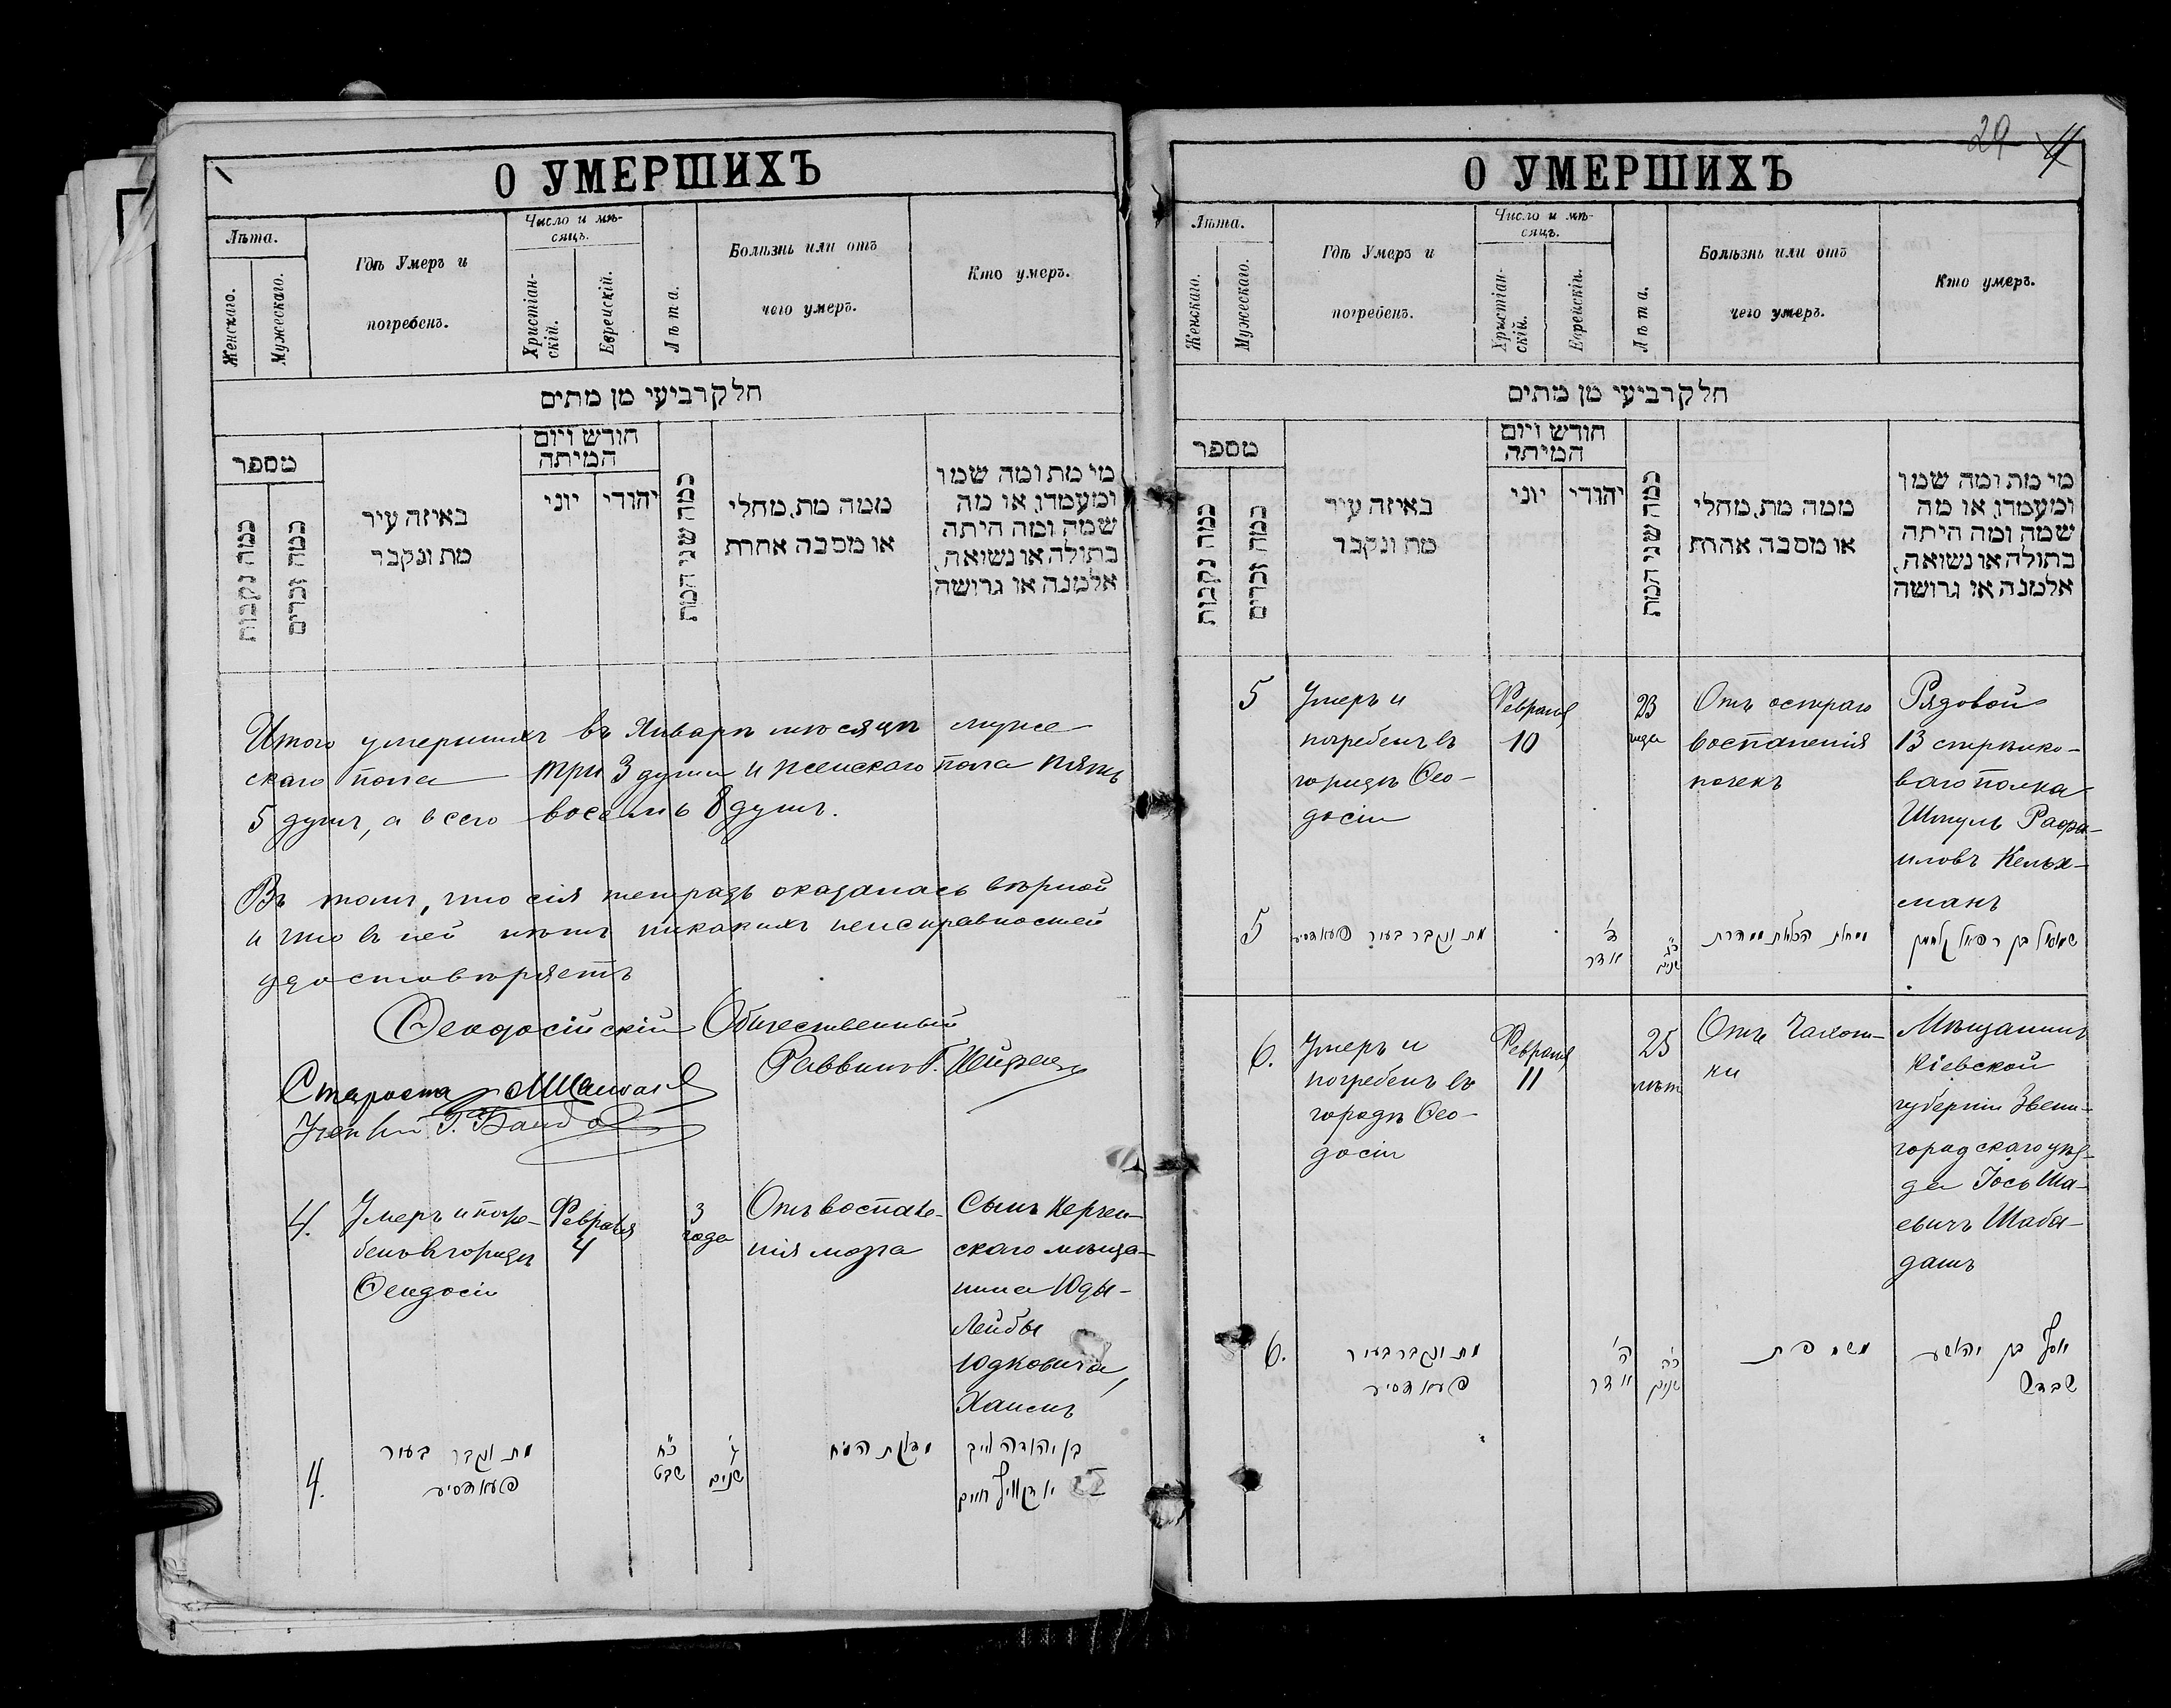 О УМЕРШИХЪ
Лѣта.
Женскаго.
Мужескаго.
Гдѣ Умеръ и
погребенъ.
Число и мѣ-
сяцъ.
Христіан-
скій.
Еврейскій.
Лѣта.
Болѣзнь или отъ
чего умеръ.
Кто умеръ.
חלק רביעי מן מתים
מספר
כמה נקבות
כמה זכרים
באיזה עיר
מת ונקבר
חודש ויום
המיתה
יוני
יהודי
כמה שני המת
ממה מת, מחלי
או מסבה אחרת
מי מת ומה שמו
ומעמדו, או מה
שמה ומה היתה
בתולה או נשואה,
אלמנה או גרושה
Итого умершихъ въ Январѣ мѣсяцѣ муже
скаго пола три 3 души и женскаго пола пять
5 душъ, а всего восемь 8 душъ.
Въ томъ, что сія тетрадь оказалась вѣрной
и что въ ней нѣтъ никакихъ неисправностей
удостовѣряетъ
Ѳеодосійскій Общественный
Раввинъ
Староста
4.
Умеръ и погре-
бенъ в городѣ
Ѳеодосіи
Февраля
4
3
года
Отъ воспале-
нія мозга
Сынъ Керчен-
скаго мѣща-
нина Юды-
Лейбы
Юдковича,
Хаимъ
4.
מת ונקבר בעיר
פעאדסיע
כ"ח
שבט
ג'
שנים
מדלקת המוח
בן יהודה ליב
חיים
О УМЕРШИХЪ
29
Лѣта.
Женскаго.
Мужескаго.
Гдѣ Умеръ и
погребенъ.
Число и мѣ-
сяцъ.
Христіан-
скій.
Еврейскій.
Лѣта.
Болѣзнь или отъ
чего умеръ.
Кто умеръ.
חלק רביעי מן מתים
מספר
כמה נקבות
כמה זכרים
באיזה עיר
מת ונקבר
חודש ויום
המיתה
יוני
יהודי
כמה שני המת
ממה מת, מחלי
או מסבה אחרת
מי מת ומה שמו
ומעמדו, או מה
שמה ומה היתה
בתולה או נשואה,
אלמנה או גרושה
5
Умеръ и
погребенъ въ
городѣ Ѳео-
досіи
Февраля
10
23
года
Отъ остраго
воспаленія
почекъ
Рядовой
13 стрѣлко-
ваго полка
Шмуль Рафа-
иловъ Кельх-
манъ
5
מת ונקבר בעיר פעאדסיע
ד'
אדר
כ"ג
שנים
שמואל בן רפאל
6.
Умеръ и
погребенъ въ
городѣ Ѳео-
досіи
Февраля
11
25
лѣтъ
Отъ Чахот-
ки
Мѣщанинъ
Кіевской
губерніи Звени-
городскаго уѣз-
да Іось Ша-
евичъ Шаба-
дашъ
6.
מת ונקבר בעיר
פעאדסיע
ה'
אדר
כ"ה
שנים
משחפת
יוסף בן יהושע
שבדש